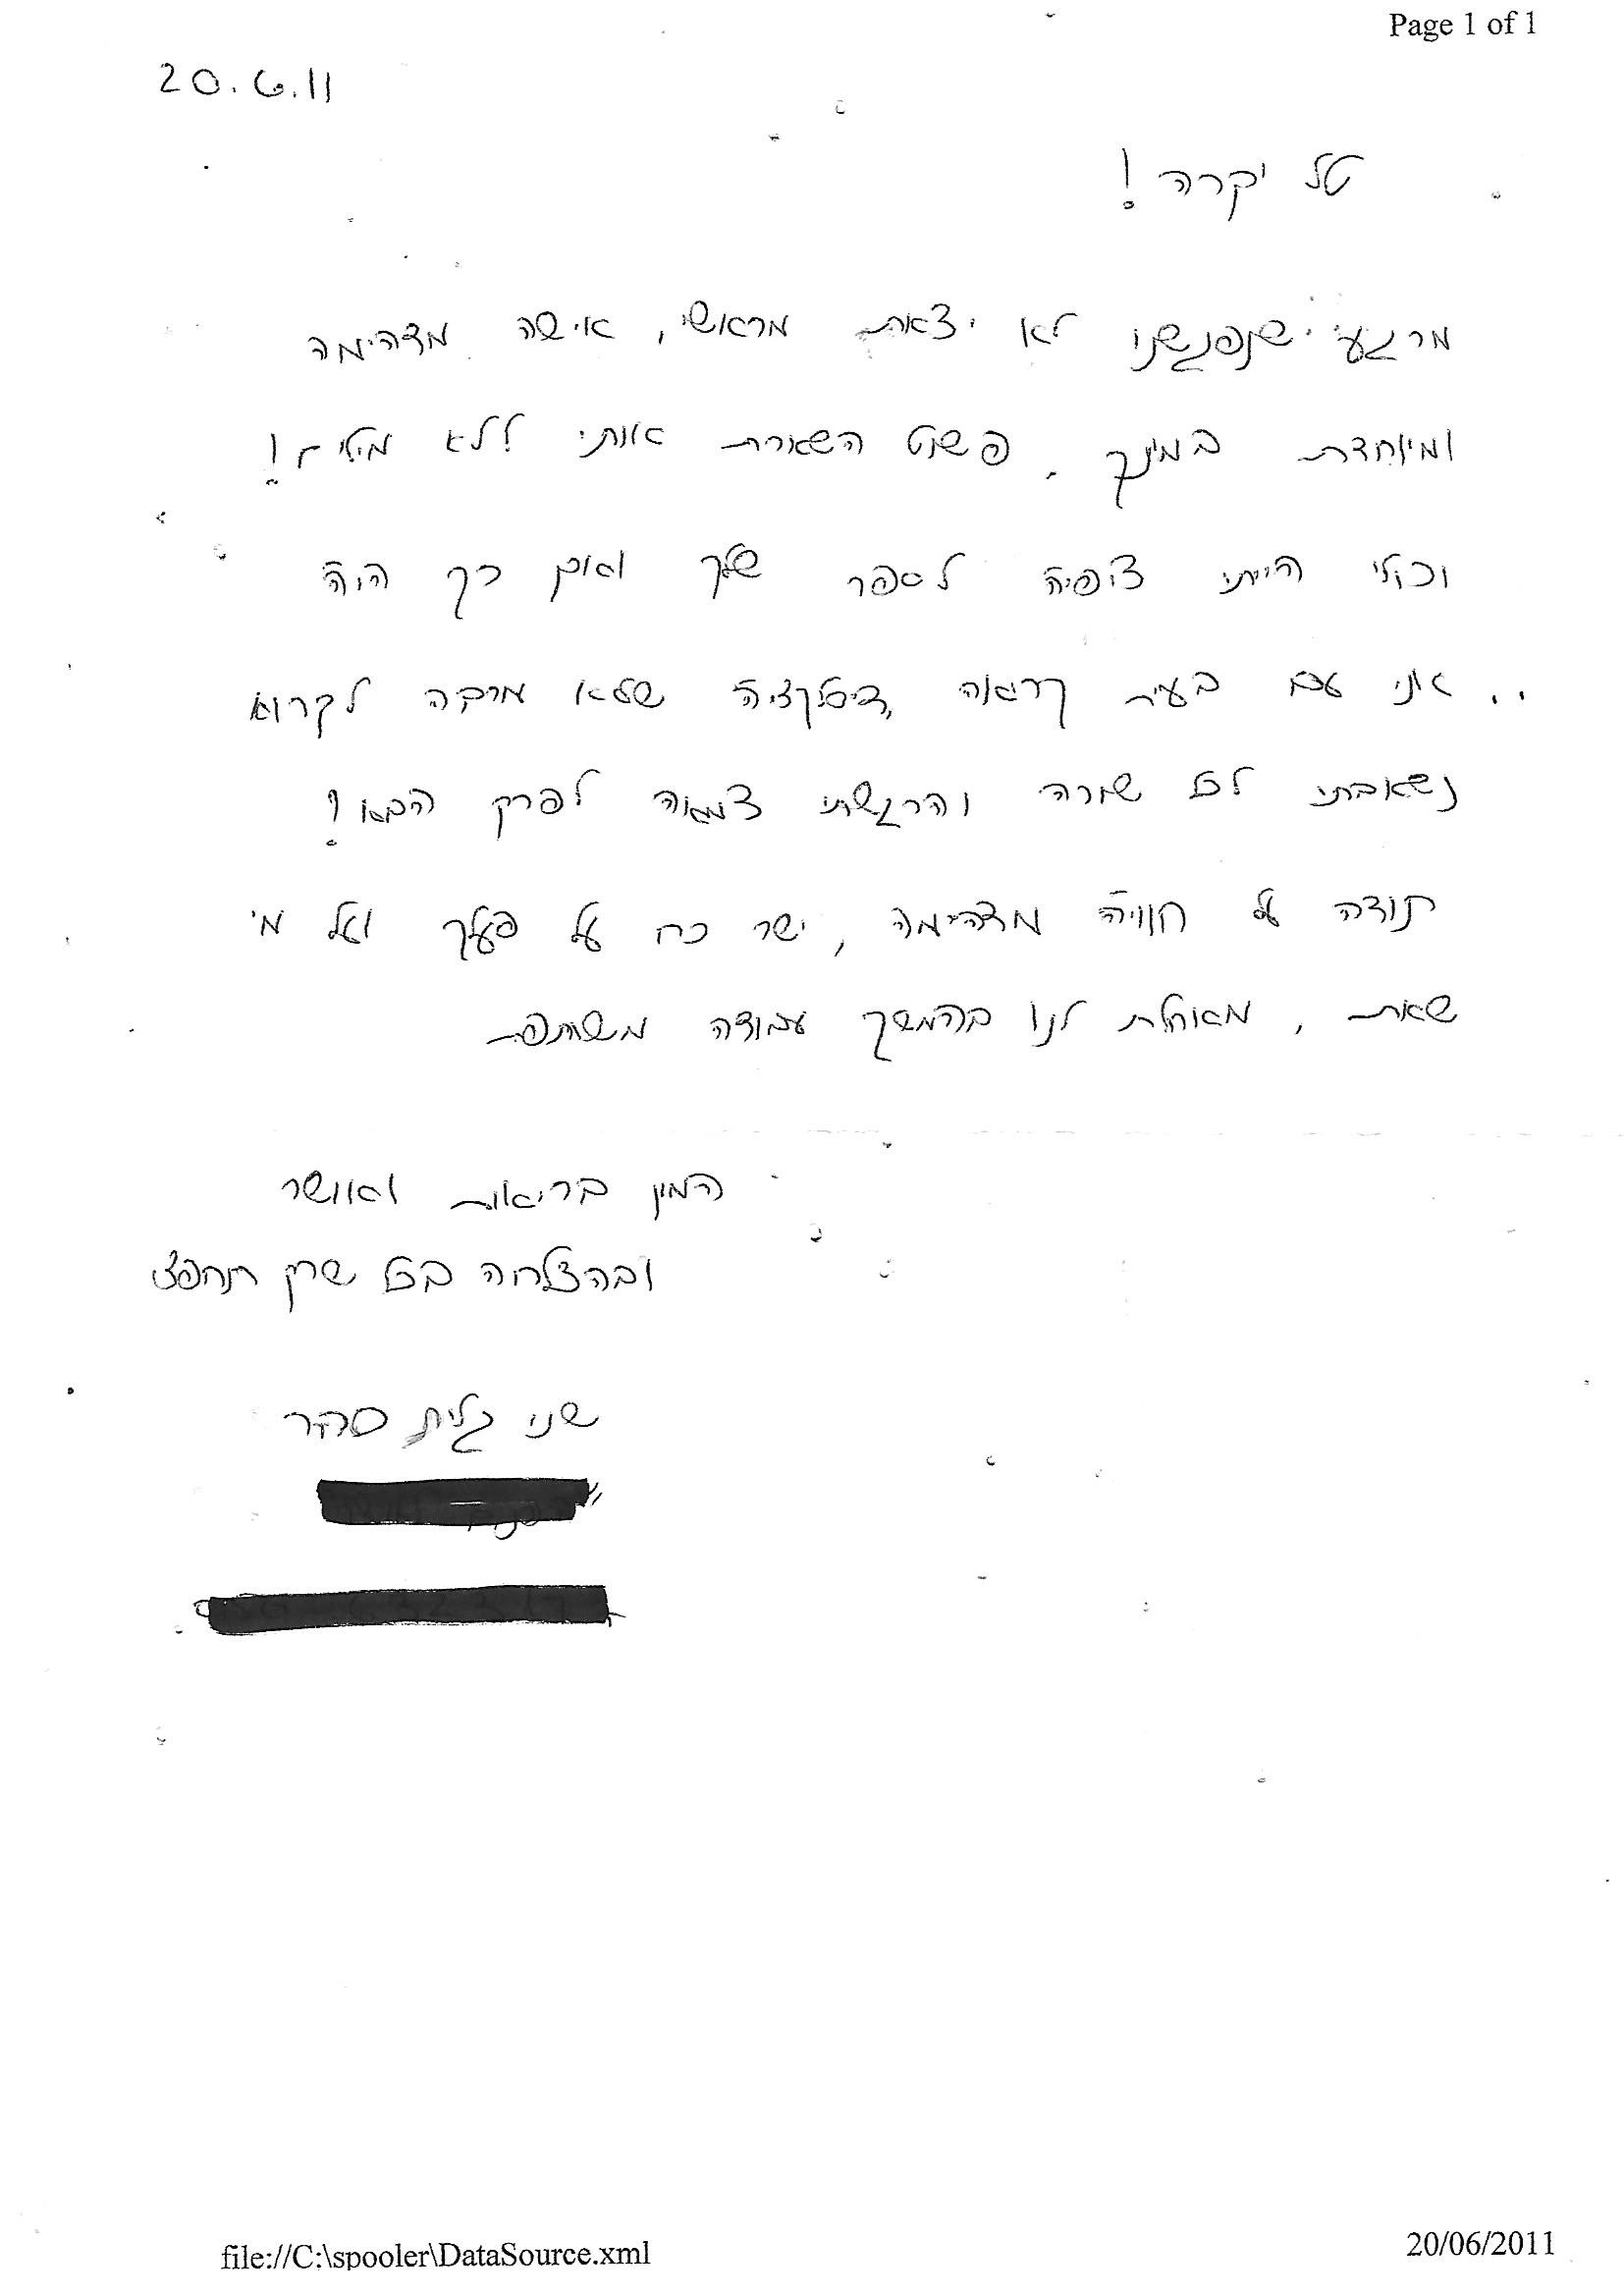 Page 1 of 1
20.6.11
טל יקרה!
מרגע שנפגשנו לא יצאת מראשי, אישה מדהימה
ומיוחדת במינך. פשוט השארת אותי ללא מילים!
וכולי הייתי צופיה לספר שלך ואום כך היה
.. אני עם בעית קריאה, דיסלקציה שלא מרבה לקרוא
נשאבתי לכל שורה והרגשתי צמאה לפרק הבא!
תודה על חוויה מדהימה, ישר כח על פעלך ועל מי
שאת, מאחלת לנו בהמשך עבודה משותפת
המון בריאות ואושר
ובהצלחה בכל שרק תחפצי
שני גלית סהר
file://C:\spooler\DataSource.xml
20/06/2011